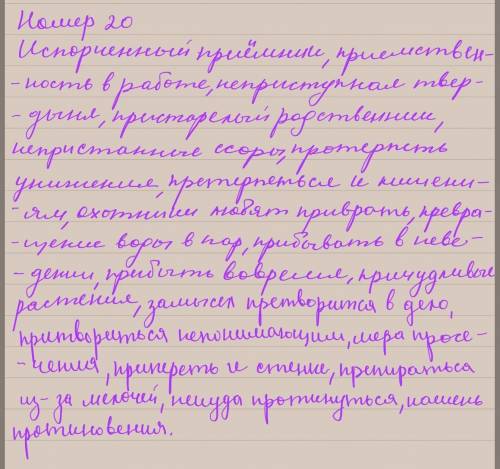 Номер 20
Испорченный приёмник, приемствен-
-ность в работе, неприступная твер-
-дыня, пристарелый родственник,
непристанные ссоры, протерпеть
унижения, претерпеться к лишени-
-ям, охотники любят приврать, превра-
-щение воды в пар, прибывать в неве-
-дении, прибыть вовремя, причудливые
растения, замысел претворится в дело,
притвориться непонимающим, мера пресе-
-чения, припереть к стенке, препираться
из-за мелочей, некуда проткнуться, камень
проткновения.